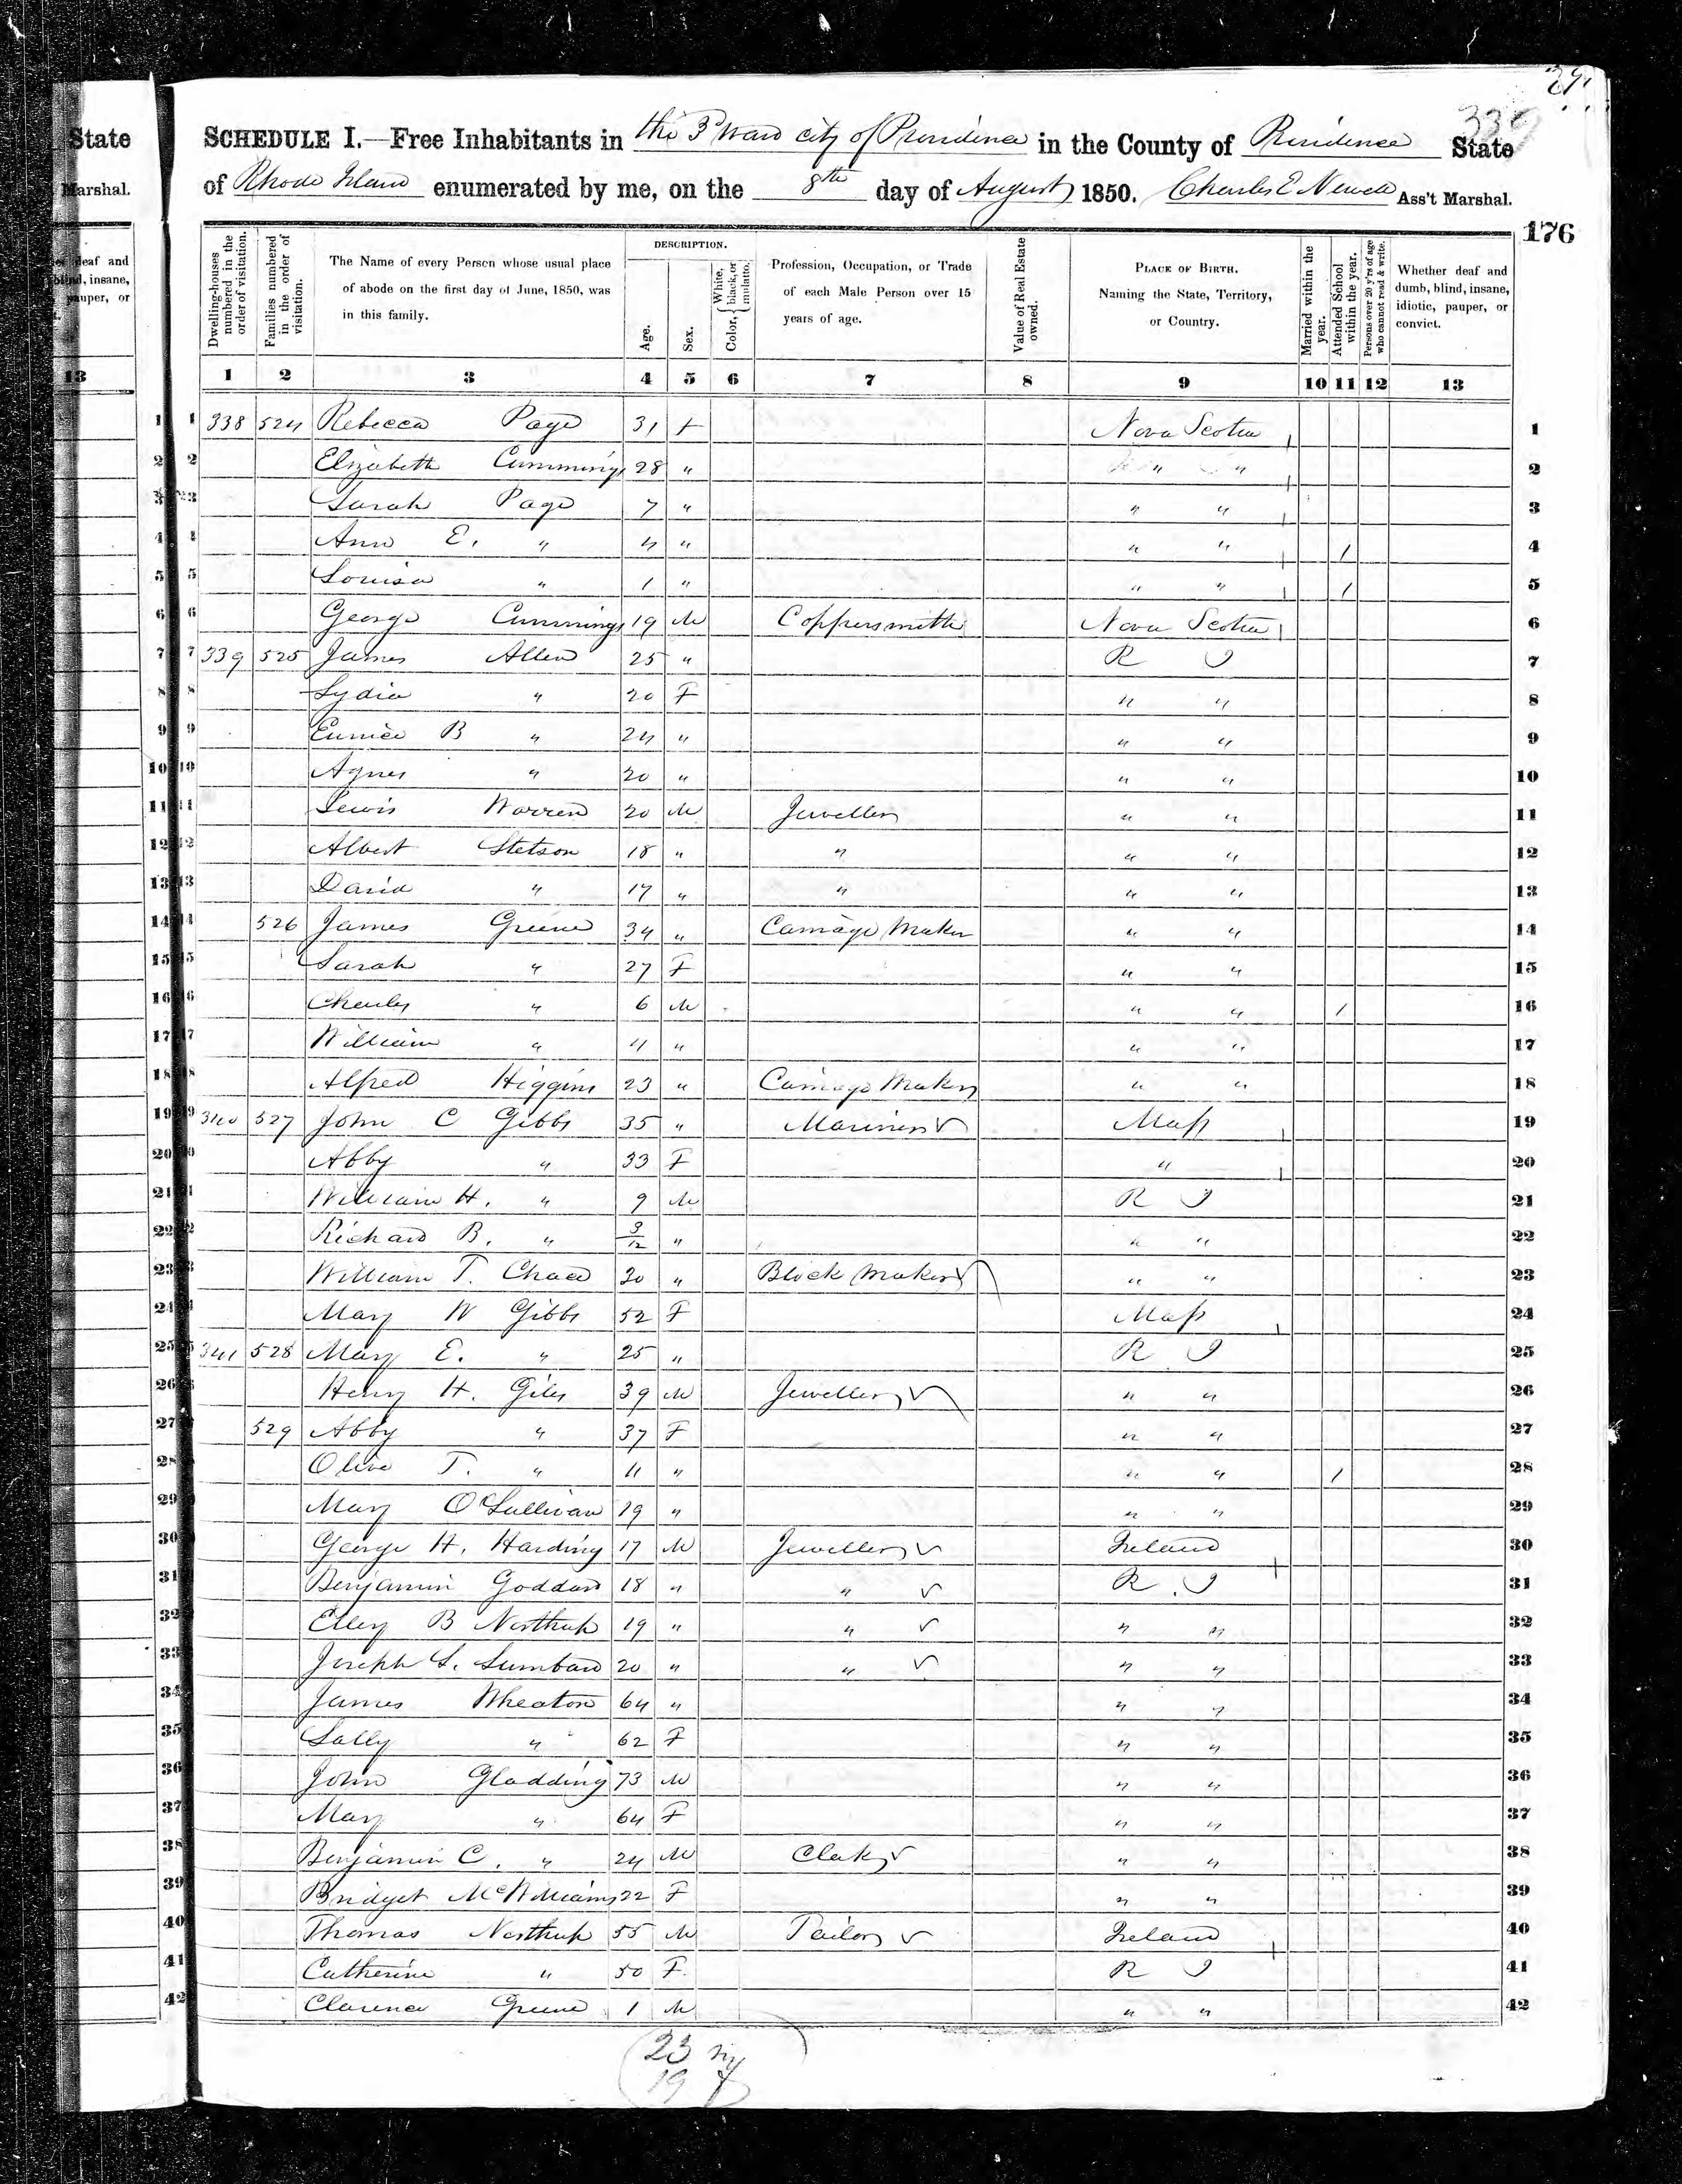 29
339
State
SCHEDULE I.—Free Inhabitants in the 3d Ward city of Providence in the County of Providence State
Marshal.
of Rhode Island enumerated by me, on the 8th day of August 1850. Charles E Newell Ass't Marshal.
176
deaf and
blind, insane,
pauper, or
13
Dwelling-houses numbered in the order of visitation.
Families numbered in the order of visitation.
The Name of every Person whose usual place of abode on the first day of June, 1850, was in this family.
DESCRIPTION.
Age.
Sex.
Color, { White, black, or mulatto.
Profession, Occupation, or Trade of each Male Person over 15 years of age.
Value of Real Estate owned.
PLACE OF BIRTH. Naming the State, Territory, or Country.
Married within the year.
Attended School within the year.
Persons over 20 y'rs of age who cannot read & write.
Whether deaf and dumb, blind, insane, idiotic, pauper, or convict.
1 2 3 4 5 6 7 8 9 10 11 12 13
1 338 524 Rebecca Page 31 F Nova Scotia 1
2 Elizabeth Cummings 28 " " " 2
3 Sarah Page 7 " " " 3
4 Ann E. " 4 " " " 1 4
5 Louisa " 1 " " " 1 5
6 George Cummings 19 M Coppersmith Nova Scotia 6
7 339 525 James Allen 25 " R I 7
8 Lydia " 20 F " " 8
9 Eunice B " 24 " " " 9
10 Agnes " 20 " " " 10
11 Lewis Warren 20 M Jeweller " " 11
12 Albert Stetson 18 " " " " 12
13 David " 17 " " " " 13
14 526 James Greene 34 " Carriage Maker " " 14
15 Sarah " 27 F " " 15
16 Charles " 6 M " " 1 16
17 William " 4 " " " 17
18 Alfred Higgins 23 " Carriage Maker " " 18
19 340 527 John C Gibbs 35 " Mariner Mass 19
20 Abby " 33 F " 20
21 William H. " 9 M R I 21
22 Richard B. " 3/12 " " " 22
23 William T. Chace 20 " Block Maker " " 23
24 Mary W Gibbs 52 F Mass 24
25 341 528 Mary E. " 25 " R I 25
26 Henry H. Giles 39 M Jeweller " " 26
27 529 Abby " 37 F " " 27
28 Olive T. " 11 " " " 1 28
29 Mary O'Sullivan 19 " " " 29
30 George H. Harding 17 M Jeweller Ireland 30
31 Benjamin Goddard 18 " " R. I 31
32 Ellery B Northup 19 " " " " 32
33 Joseph S. 20 " " " " 33
34 James Wheaton 64 " " " 34
35 Sally " 62 F " " 35
36 John Gladding 73 M " " 36
37 Mary " 64 F " " 37
38 Benjamin C. " 24 M Clerk " " 38
39 Bridget McWilliams 22 F " " 39
40 Thomas Northup 55 M Tailor Ireland 40
41 Catherine " 50 F. R I 41
42 Clarence Greene 1 M " " 42
23 m
19 f